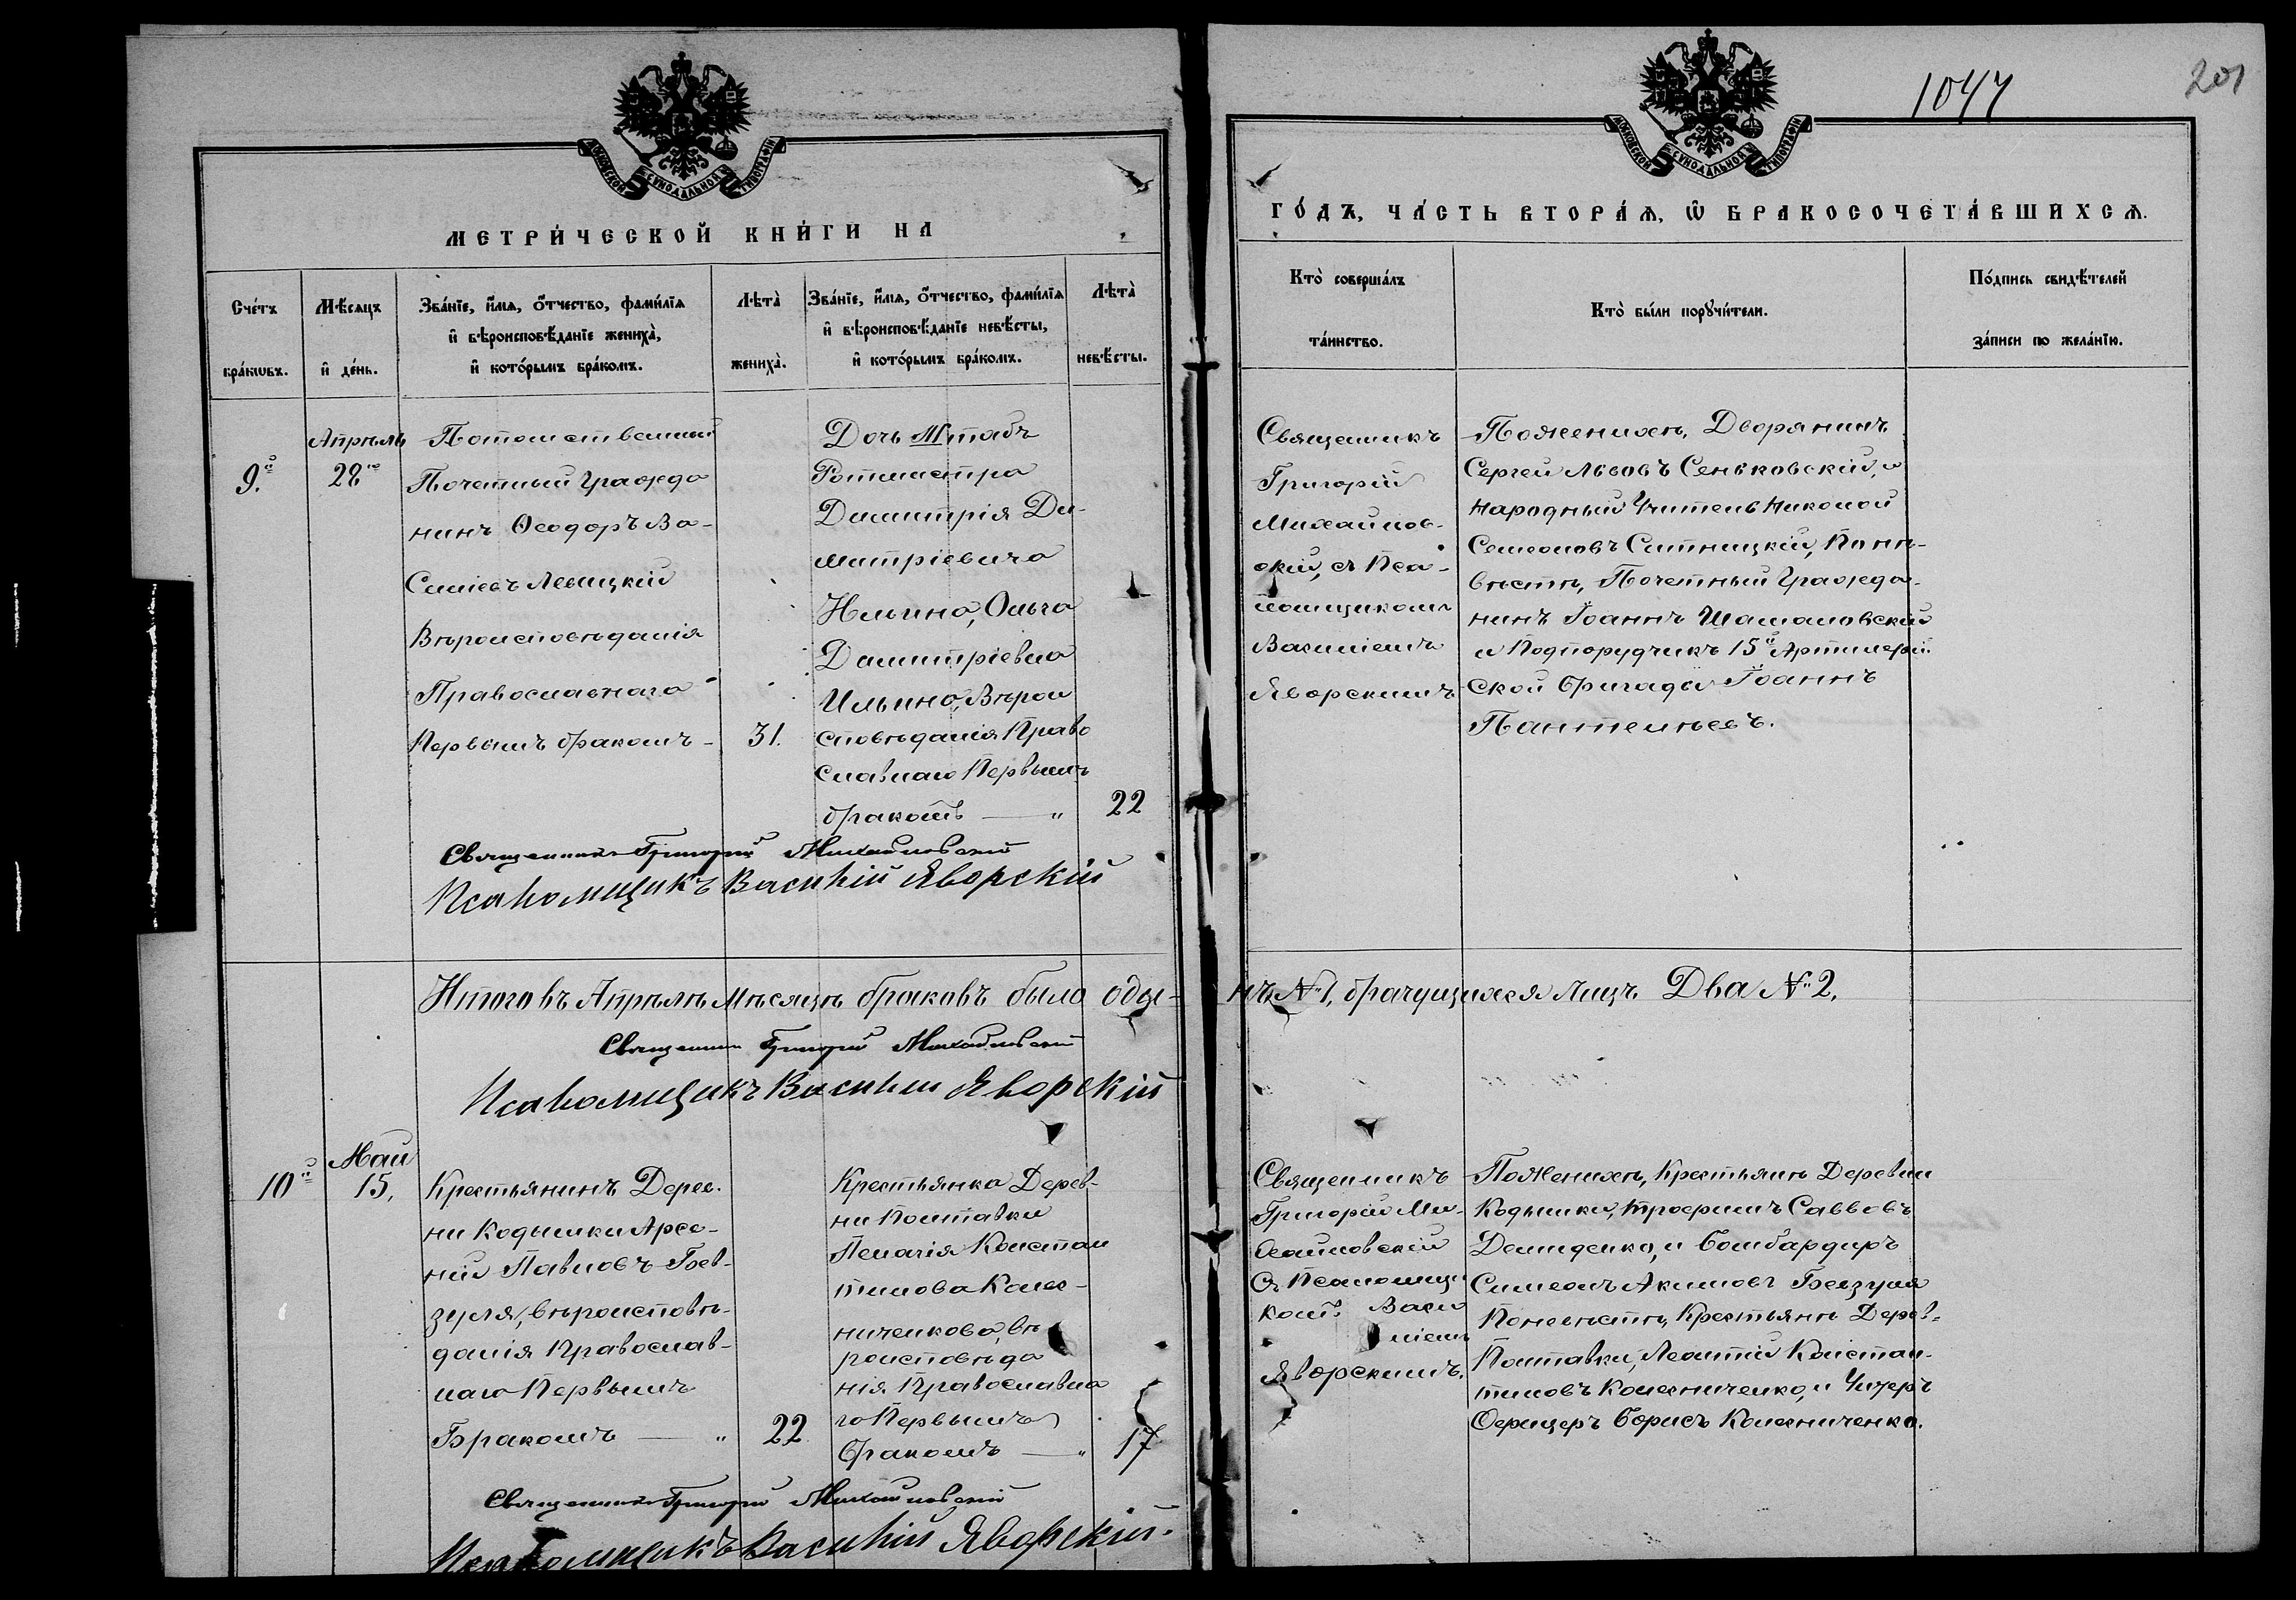 1044
201
МОСКОВСКОЙ СУНОДАЛЬНОЙ ТИПОГРАФІИ
МОСКОВСКОЙ СУНОДАЛЬНОЙ ТИПОГРАФІИ
МЕТРИ́ЧЕСКОЙ КНИ́ГИ НА
ГО́ДЪ, ЧА́СТЬ ВТОРА́Я, Ѿ БРАКОСОЧЕТА́ВШИХСЯ.
Сче́тъ
бра́кѡвъ.
Мѣ́сяцъ
и҆ де́нь.
Зва́нїе, и҆́мя, ѻ҆́тчество, фами́лїя
и҆ вѣроисповѣ́данїе жениха̀,
и҆ кото́рымъ бра́комъ.
Лѣта̀
жениха̀.
Зва́нїе, и҆́мя, ѻ҆́тчество, фами́лїя
и҆ вѣроисповѣ́данїе невѣ́сты,
и҆ кото́рымъ бра́комъ.
Лѣта̀
невѣ́сты.
Кто̀ соверша́лъ
та́инство.
Кто̀ бы́ли порꙋчи́тели.
По́дпись свидѣ́телей
за́писи по жела́нїю.
9.й
Апрѣль
28го
Потомственный
Почетный Гражда
нинъ Ѳеодоръ Ва-
силіевъ Левицкій
Вѣроисповѣданія
Православнаго
Первымъ бракомъ -
31.
Дочь Штабъ
Ротмистра
Димитрія Ди-
митріевича
Ильина, Ольга
Димитріевна
Ильина, Вѣрои
сповѣданія Право
славнаго Первымъ
бракомъ — "
22
Священникъ
Григорій
Михайлов-
скій, съ Пса-
ломщикомъ
Василіемъ
Яворскимъ
По женихѣ, Дворянинъ
Сергей Львовъ Сеньковскій, и
народный Учитель Николай
Семеоновъ Ситницкій, По не-
вѣстѣ, Почетный Гражда-
нинъ Іоаннъ Шамановскій
и Подпоручикъ 15й Артилерій-
ской бригады Іоаннъ
Пантелѣевъ.
Священникъ Григорій Михайловскій
Псаломщикъ Василій Яворскій
Итого въ Апрѣлѣ Мѣсяцѣ браковъ было одинъ № 1, брачущихся лицъ Два № 2.
Священникъ Григорій Михайловскій
Псаломщикъ Василій Яворскій
10й
Май
15,
Крестьянинъ Дерев.
ни Кодымки Арсе-
ній Павловъ Бев-
зуля, вѣроисповѣ-
данія Православ-
наго Первымъ
Бракомъ — "
22
Крестьянка Дерев-
ни Полтавки
Пелагія Констан
тинова Колес-
ниченкова, вѣ
роисповѣда
нія Православна
го Первымъ
бракомъ — "
17
Священникъ
Григорій Ми-
хайловскій
съ Псаломщи
комъ Васи
ліемъ
Яворскимъ.
По Женихѣ, Крестьянъ Деревни
Кодымки, Трофимъ Саввовъ
Демиденко, и бомбардиръ
Симеонъ Акимовъ Бевзуля
По невѣстѣ, Крестьянъ Дерев-
Полтавки, Леонтій Констан-
тиновъ Колесниченко, и Унтеръ
Офицеръ Борисъ Колесниченко.
Священникъ Григорій Михайловскій
Псаломщикъ Василій Яворскій.